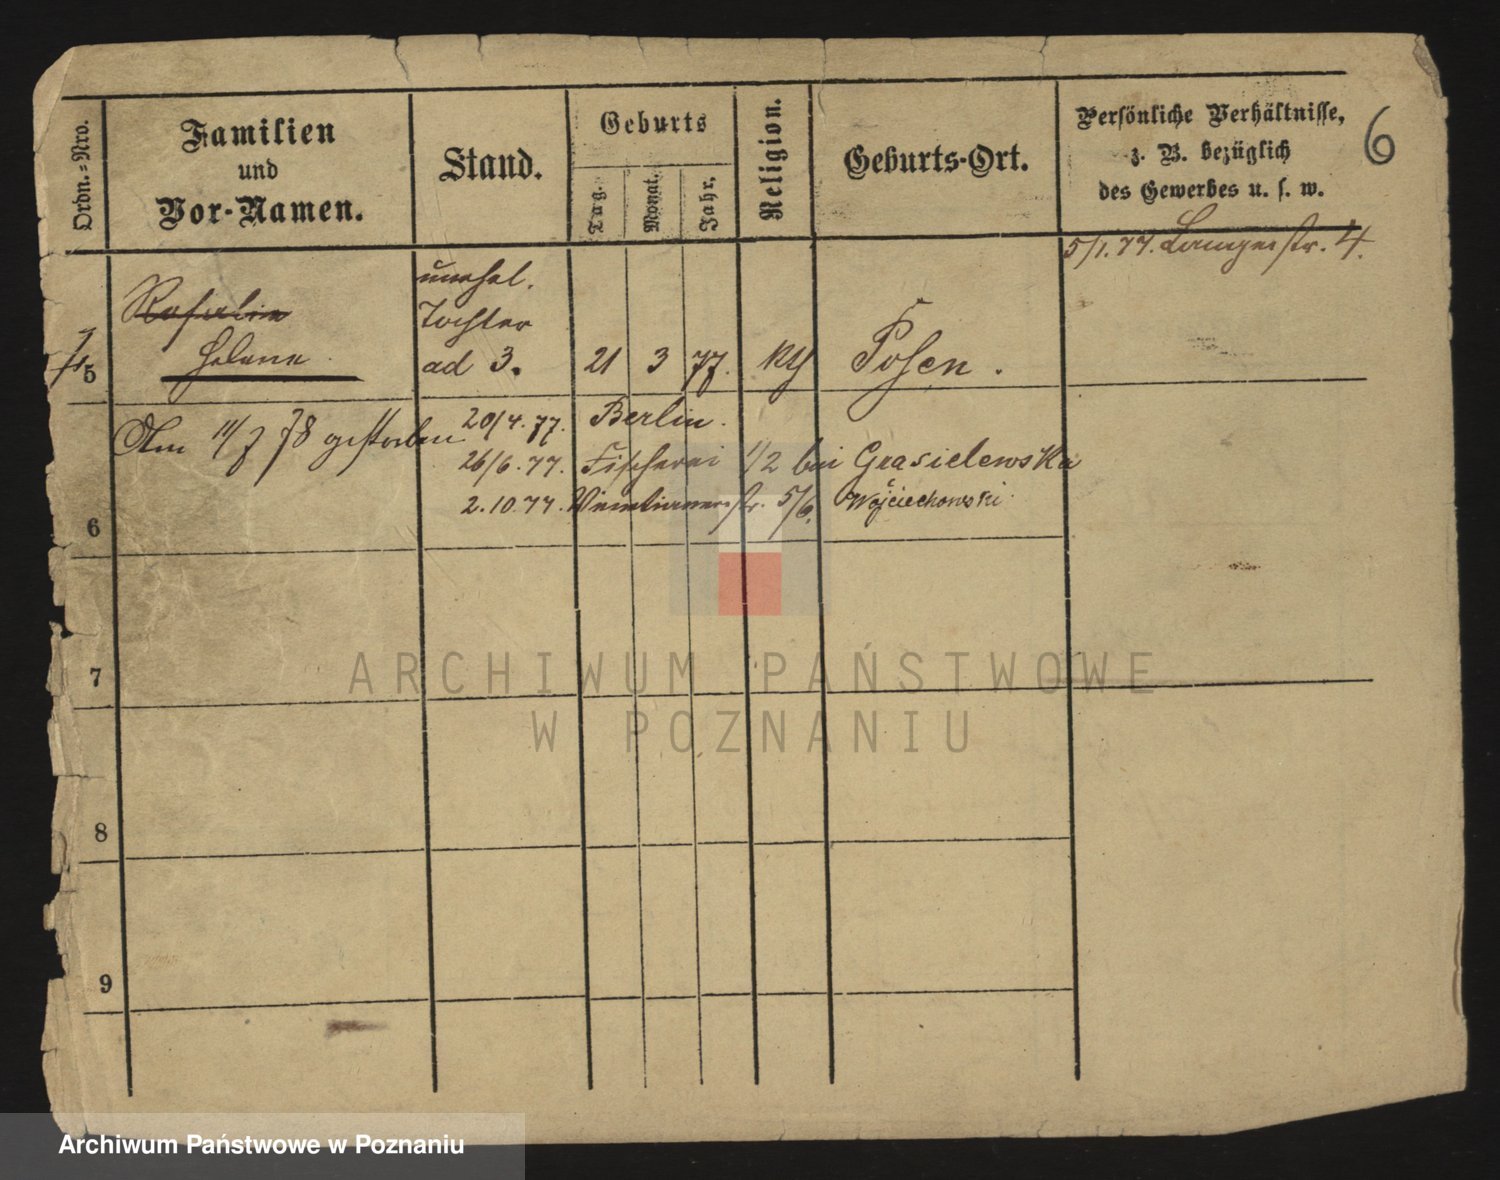 Ordn.-Nro.
Familien
und
Vor-Namen.
Stand.
Geburts
Tag.
Monat.
Jahr.
Religion.
Geburts-Ort.
Persönliche Verhältnisse,
z. B. bezüglich
des Gewerbes u. s. w.
6
5/1. 77. Langestr. 4.
unehel.
Tochter
ad 3.
Helene
5
21 3 77. Posen.
Am 11/7 78 gestorben
20/4. 77. Berlin.
26/6. 77. Fischerei 1/2 bei Grasielewska
2.10.77. 5/6. Wojciechowski
6
7
8
9
ARCHIWUM PAŃSTWOWE
W POZNANIU
Archiwum Państwowe w Poznaniu